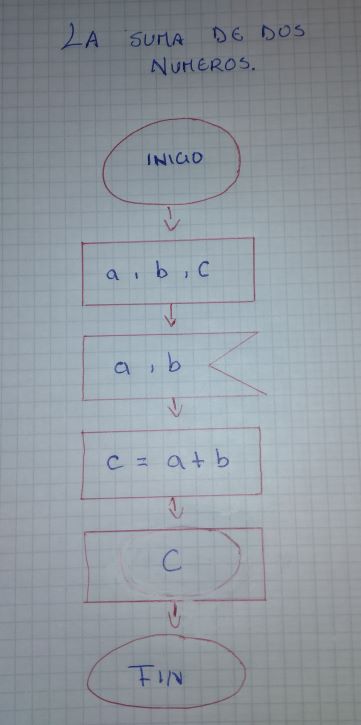 LA SUMA DE DOS
NUMEROS.
INICIO
a, b, c
a, b
c = a + b
C
FIN